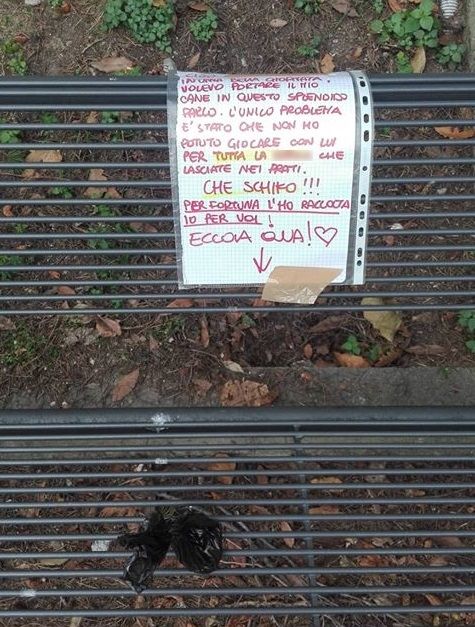 IN UNA BELLA GIORNATA.
VOLEVO PORTARE IL MIO
CANE IN QUESTO SPLENDIDO
PARCO. L'UNICO PROBLEMA
E' STATO CHE NON HO
POTUTO GIOCARE CON LUI
PER TUTTA LA CHE
LASCIATE NEI PRATI.
CHE SCHIFO!!!
PER FORTUNA L'HO RACCOLTA
IO PER VOI!
ECCOLA QUA!♡
↓